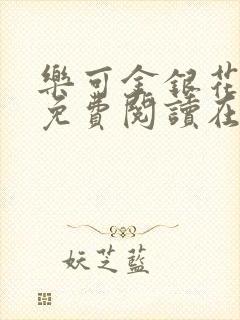 樂可金銀花
免費閱讀在
妖芝藍